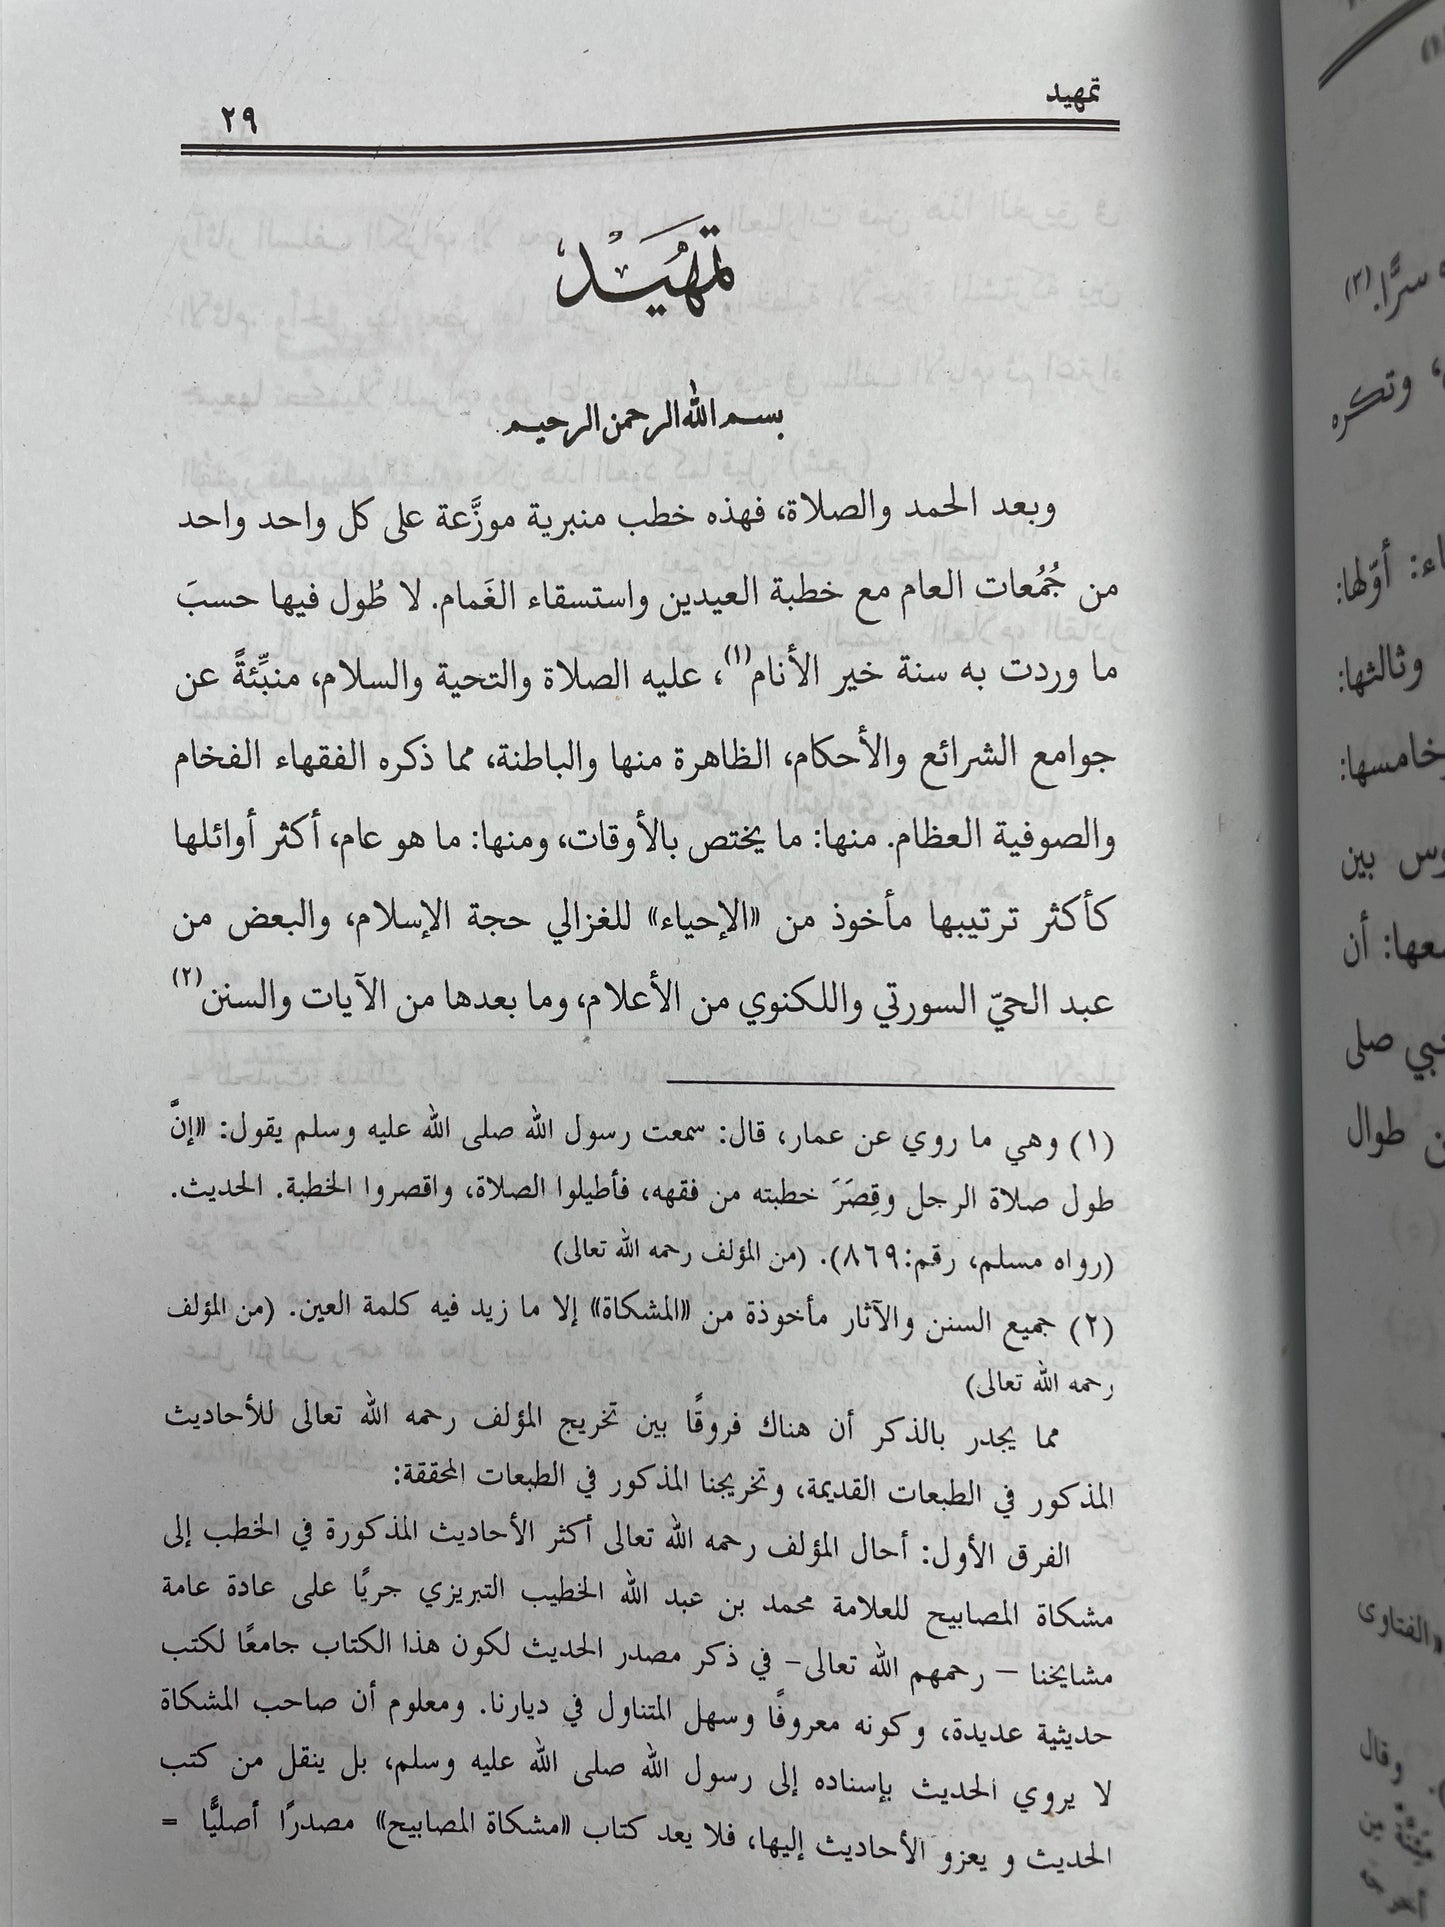 تمهيد
٢٩
تمهيد
بسم الله الرحمن الرحيم
وبعد الحمد والصلاة، فهذه خطب منبرية موزَّعة على كل واحد واحد
من جُمُعات العام مع خطبة العيدين واستسقاء الغَمام. لا طُول فيها حسبَ
ما وردت به سنة خير الأنام(١)، عليه الصلاة والتحية والسلام، منبِّئةً عن
جوامع الشرائع والأحكام، الظاهرة منها والباطنة، مما ذكره الفقهاء الفخام
والصوفية العظام. منها: ما يختص بالأوقات، ومنها: ما هو عام، أكثر أوائلها
كأكثر ترتيبها مأخوذ من «الإحياء» للغزالي حجة الإسلام، والبعض من
عبد الحيّ السورتي واللكنوي من الأعلام، وما بعدها من الآيات والسنن(٢)
(١) وهي ما روي عن عمار، قال: سمعت رسول الله صلى الله عليه وسلم يقول: «إنَّ
طول صلاة الرجل وقِصَرَ خطبته من فقهه، فأطيلوا الصلاة، واقصروا الخطبة. الحديث.
(رواه مسلم، رقم:٨٦٩). (من المؤلف رحمه الله تعالى)
(٢) جميع السنن والآثار مأخوذة من «المشكاة» إلا ما زيد فيه كلمة العين. (من المؤلف
رحمه الله تعالى)
مما يجدر بالذكر أن هناك فروقًا بين تخريج المؤلف رحمه الله تعالى للأحاديث
المذكور في الطبعات القديمة، وتخريجنا المذكور في الطبعات المحققة:
الفرق الأول: أحال المؤلف رحمه الله تعالى أكثر الأحاديث المذكورة في الخطب إلى
مشكاة المصابيح للعلامة محمد بن عبد الله الخطيب التبريزي جريًا على عادة عامة
مشايخنا – رحمهم الله تعالى– في ذكر مصدر الحديث لكون هذا الكتاب جامعًا لكتب
حديثية عديدة، وكونه معروفًا وسهل المتناول في ديارنا. ومعلوم أن صاحب المشكاة
لا يروي الحديث بإسناده إلى رسول الله صلى الله عليه وسلم، بل ينقل من كتب
الحديث و يعزو الأحاديث إليها، فلا يعد كتاب «مشكاة المصابيح» مصدرًا أصليًّا =
سرًّا.(٣)
وتكره
أوّلها:
وثالثها:
خامسها:
بين
أن
صلى
طوال
«الفتاوى
وقال